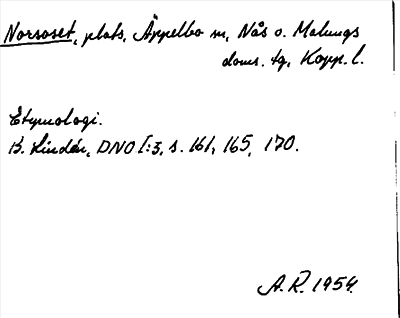 Norsoset, plats, Äppelbo sn, Nås o. Malungs
doms. tg, Kopp. l.
Etymologi.
B. Lindén, DNO I:3, s. 161, 165, 170.
A.R. 1954.